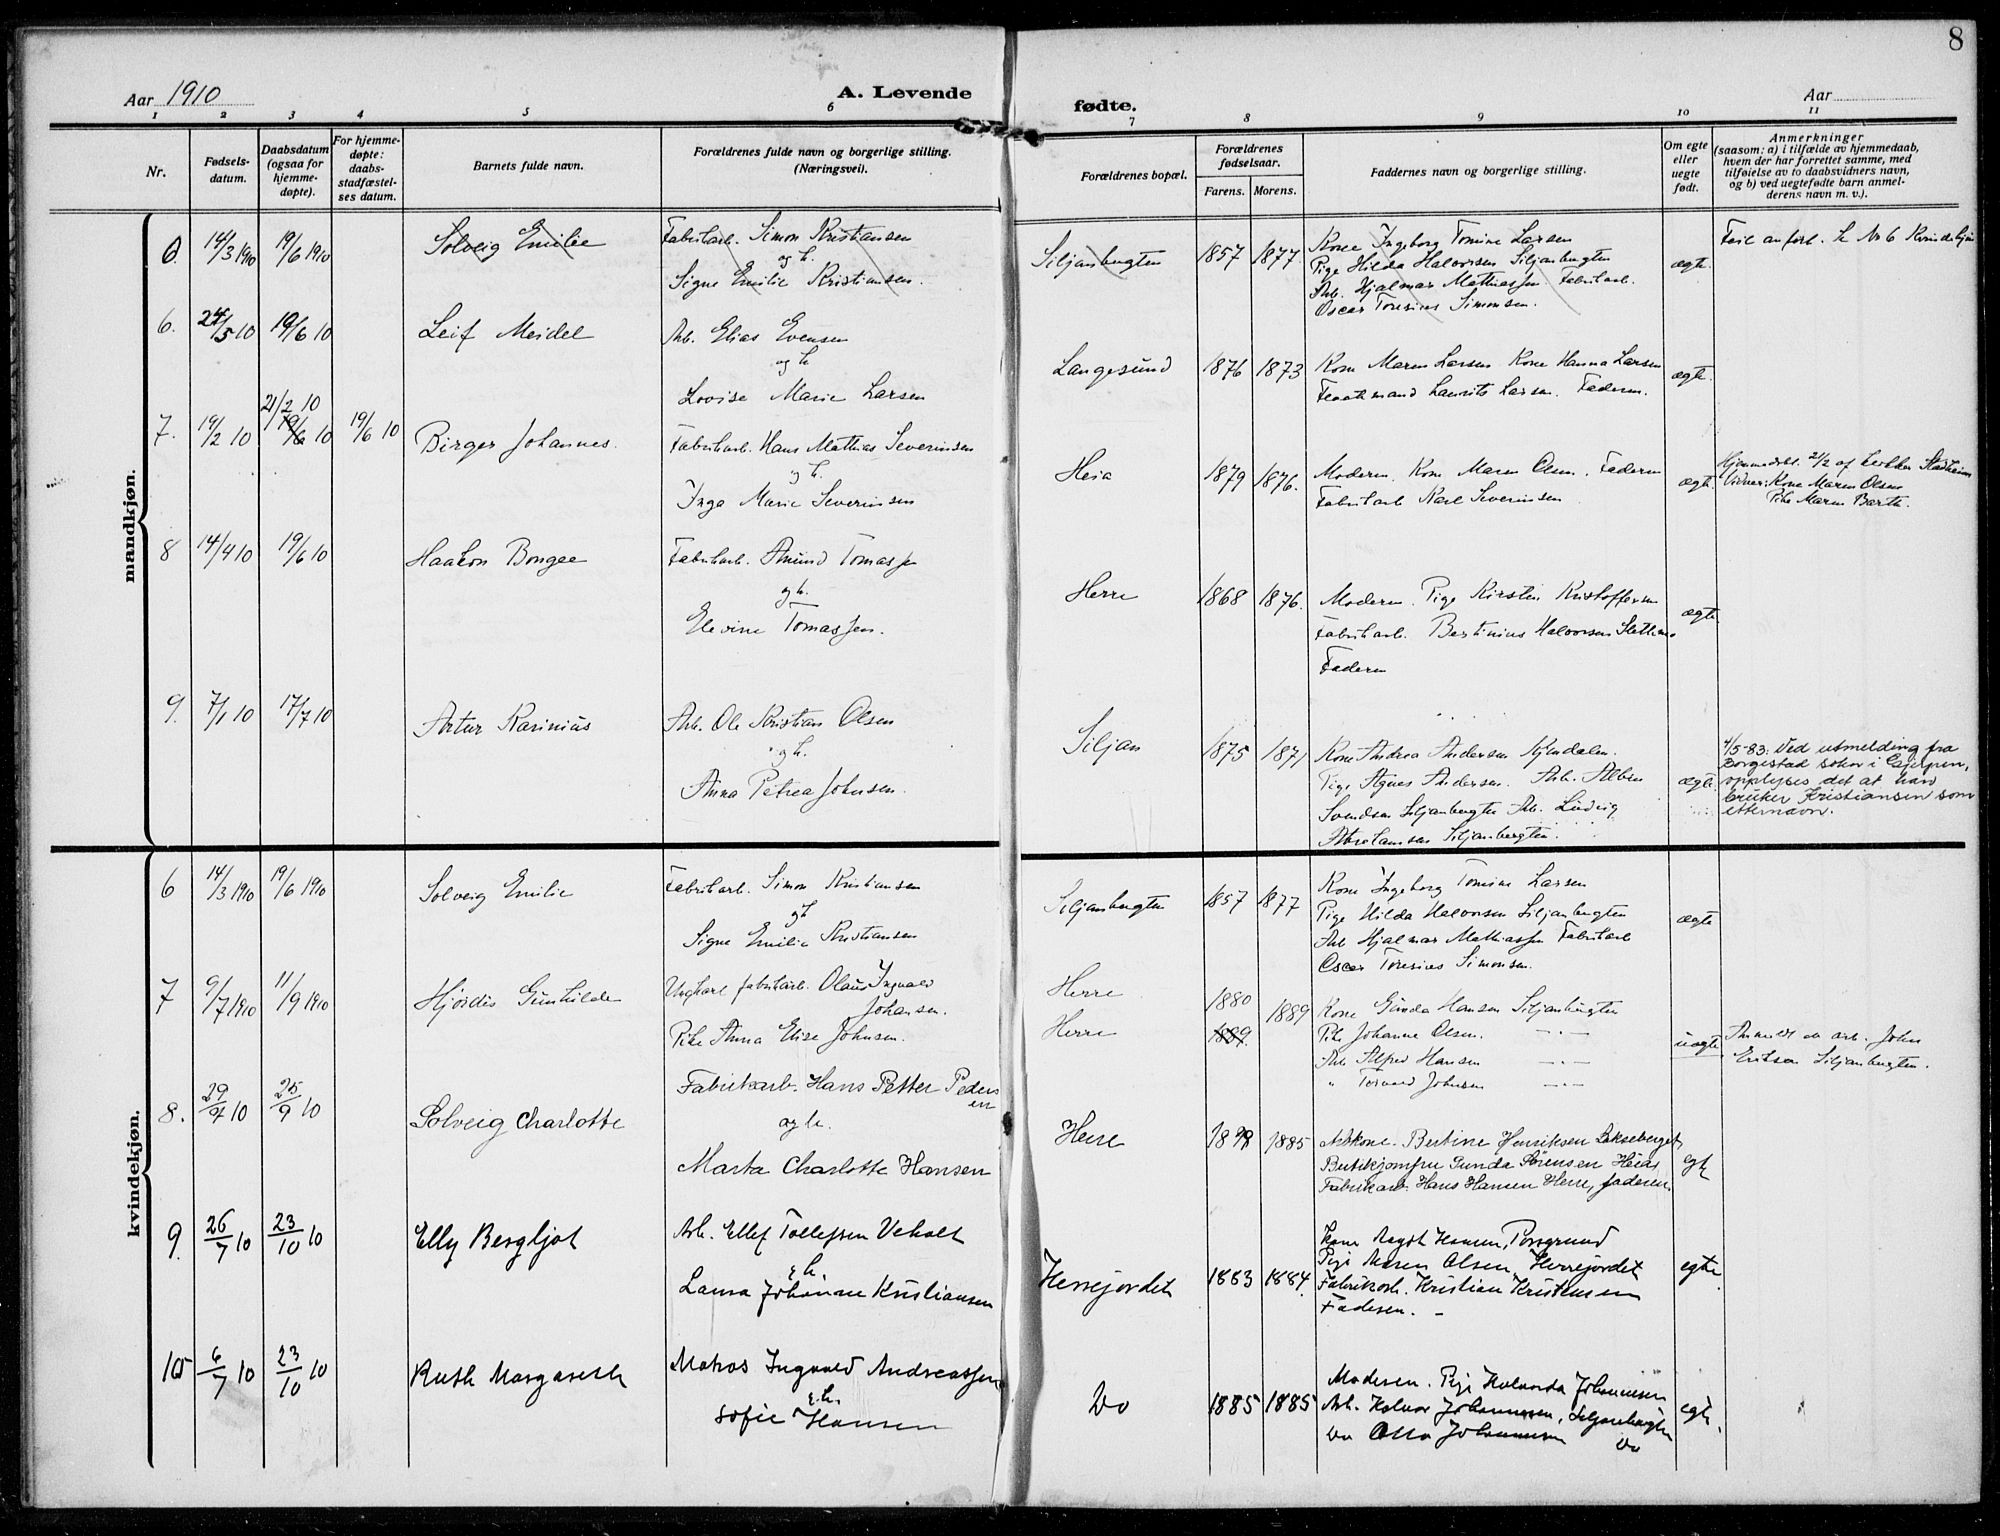 8
Aar 1910
A. Levende
fødte.
Aar
1 2 3 4 5 6 7 8 9 10 11
Nr.
Fødsels-
datum.
Daabsdatum
(ogsaa for
hjemme-
døpte).
For hjemme-
døpte:
daabs-
stadfæstel-
ses datum.
Barnets fulde navn.
Forældrenes fulde navn og borgerlige stilling.
(Næringsvei).
Forældrenes bopæl.
Forældrenes
fødselsaar.
Farens. Morens.
Faddernes navn og borgerlige stilling.
Om egte
eller
uegte
født.
Anmerkninger
(saasom: a) i tilfælde av hjemmedaab,
hvem der har forrettet samme, med
tilføielse av to daabsvidners navn,
og b) ved uegtefødte barn anmel-
derens navn m. v.).
mandkjøn.
14/3 1910 19/6 1910 Solveig Emilie
Fabrikarb. Simon Kristiansen
og h.
Signe Emilie Kristiansen.
Siljanbugten 1857 1877
Kone Ingeborg Tomine Larsen
Pige Hilda Halvorsen Siljanbugten
Arb. Hjalmar Mathiassen Fabrikarb.
Oscar Toresius Simonsen.
ægte.
Feil anført. Se No 6 Kvindekjøn
6. 24/5 10 19/6 10 Leif Meidel
Arb. Elias Evensen
og h
Lovise Marie Larsen
Langesund 1876 1873
Kone Maren Larsen Kone Hanna Larsen
Laurits Larsen. Faderen.
ægte.
7. 19/2 10 21/2 10 19/6 10 19/6 10 Birger Johannes.
Fabrikarb. Hans Mathias Severinsen
og h.
Inga Marie Severinsen
Heia 1879 1876.
Moderen. Kone Maren Olsen. Faderen
Fabrikarb Karl Severinsen
ægte.
Hjemmedøbt 21/2 af
Vidner: Kone Maren Olsen
Pike Maren Barth.
8 14/4 10 19/6 10 Haakon Bongee
Fabrikarb. Amund Tomassen
og h.
Elevine Tomassen.
Herre 1868 1876.
Moderen. Pige Kirsten Kristoffersen
Fabrikarb. Bertinius Halvorsen
Faderen
ægte.
9. 7/1 10 17/7 10 Artur Karinius
Arb. Ole Kristian Olsen
og h.
Anna Petrea Johnsen.
Siljan 1875 1871
Kone Andrea Andersen Kjendalen.
Pige Agnes Andersen. Arb. Albin
Svendsen Siljanbugten Arb. Ludvig
Abrahamsen Siljanbergten.
ægte.
4/5-83: Ved utmelding fra
Borgestad sokn i Gjerpen,
opplyses det at han
bruker Kristiansen som
etternavn.
kvindekjøn.
6 14/3 1910 19/6 1910 Solveig Emilie
Fabrikarb. Simon Kristiansen
og h
Signe Emilie Kristiansen
Siljanbugten 1857 1877
Kone Ingeborg Tomine Larsen
Pige Hilda Halvorsen Siljanbugten
Arb Hjalmar Mathiassen Fabrikarb
Oscar Toresius Simonsen.
ægte
7 9/7 1910 11/9 1910 Hjørdis Gunhilde
Ungkarl fabrikarb. Olaus Ingvald
Johansen.
Pike Anna Elise Johnsen.
Herre
Herre
1880 1889
1889.
Kone Gunda Hansen Siljanbugten
Pike Johanne Olsen. —"—
Arb Alfred Hansen —"—
" Torvald Johnsen —"—
uægte
Anmeldt av arb. John
Eriksen Siljanbugten.
8. 29/7 10 25/9 10 Solveig Charlotte
Fabrikarb. Hans Petter Peders
en
og h.
Marta Charlotte Hansen
Herre 1885
Arbkone. Bertine Henriksen Lakseberget,
Butikjomfru Gunda Sørensen Heia,
Fabrikarb. Hans Hansen Herre, faderen.
egte
9. 26/7 10 23/10 10 Elly Bergljot
Arb. Ellef Tollefsen Veholt
& h.
Laura Johanne Kristiansen
Herrejordet 1883 1884.
Kone Hansen, Porsgrund
Pige Maren Olsen, Herrejordet
Fabrikarb. Kristian Kristensen
Faderen. —
egte.
10 6/7 10 23/10 10 Ruth Margareth
Matros Ingvald Andreassen
& h.
Sofie Hansen
Do 1885 1885
Moderen. Pige Johannesen
Arb. Halvor Johannesen, Siljanbugten
Do Otto Johannesen Do
egte.